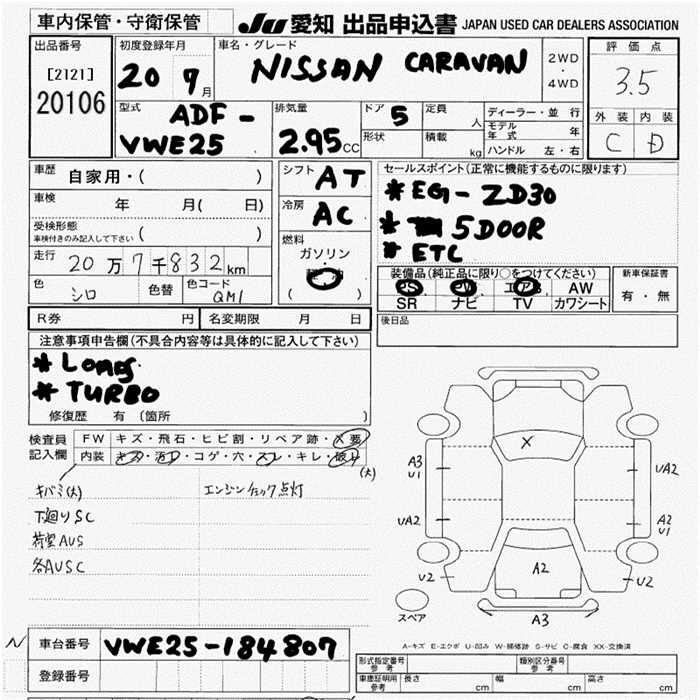 車内保管・守衛保管
JU 愛知 出品申込書 JAPAN USED CAR DEALERS ASSOCIATION
出品番号
[2121]
20106
初度登録年月
20 9月
車名・グレード
NISSAN CARAVAN
2WD
・
4WD
評価点
3.5
外装 内装
C D
型式
ADF-
VWE25
排気量
2.95cc
ドア 5
形状
定員 人
積載 kg
ディーラー・並行
モデル年式 年
ハンドル 左・右
車歴 自家用・( )
車検 年 月( 日)
受検形態
車検付きのみ記入して下さい ( )
走行 20万7千832km
色 シロ 色替 色コード QM1
シフト AT
冷房 AC
燃料
ガソリン
・
軽油
( )
セールスポイント(正常に機能するものに限ります)
* EG-ZD30
* 5DOOR
* ETC
装備品(純正品に限り○をつけてください)
PS PW エアB AW
SR ナビ TV カワシート
新車保証書
有・無
R券 円 名変期限 月 日
後日品
注意事項申告欄(不具合内容等は具体的に記入して下さい)
*
* TURBO
修復歴 有 (箇所 )
検査員
記入欄
FW キズ・飛石・ヒビ割・リペア跡・X要
内装 キズ・汚レ・コゲ・穴・スレ・キレ・破レ
(大)
キバミ(大) エンジンチェック点灯
下廻りSC
荷室AUS
各AUSC
X
A3
U1
UA2
UA2
A2
U1
U2
U2
A2
A3
スペア
A-キズ E-エクボ U-凹み W-補修跡 S-サビ C-腐食 XX-交換済
N 車台番号 VWE25-184807
登録番号
形式指定番号
参考
類別区分番号
参考
車庫証明用
参考
長さ cm 幅 cm 高さ cm